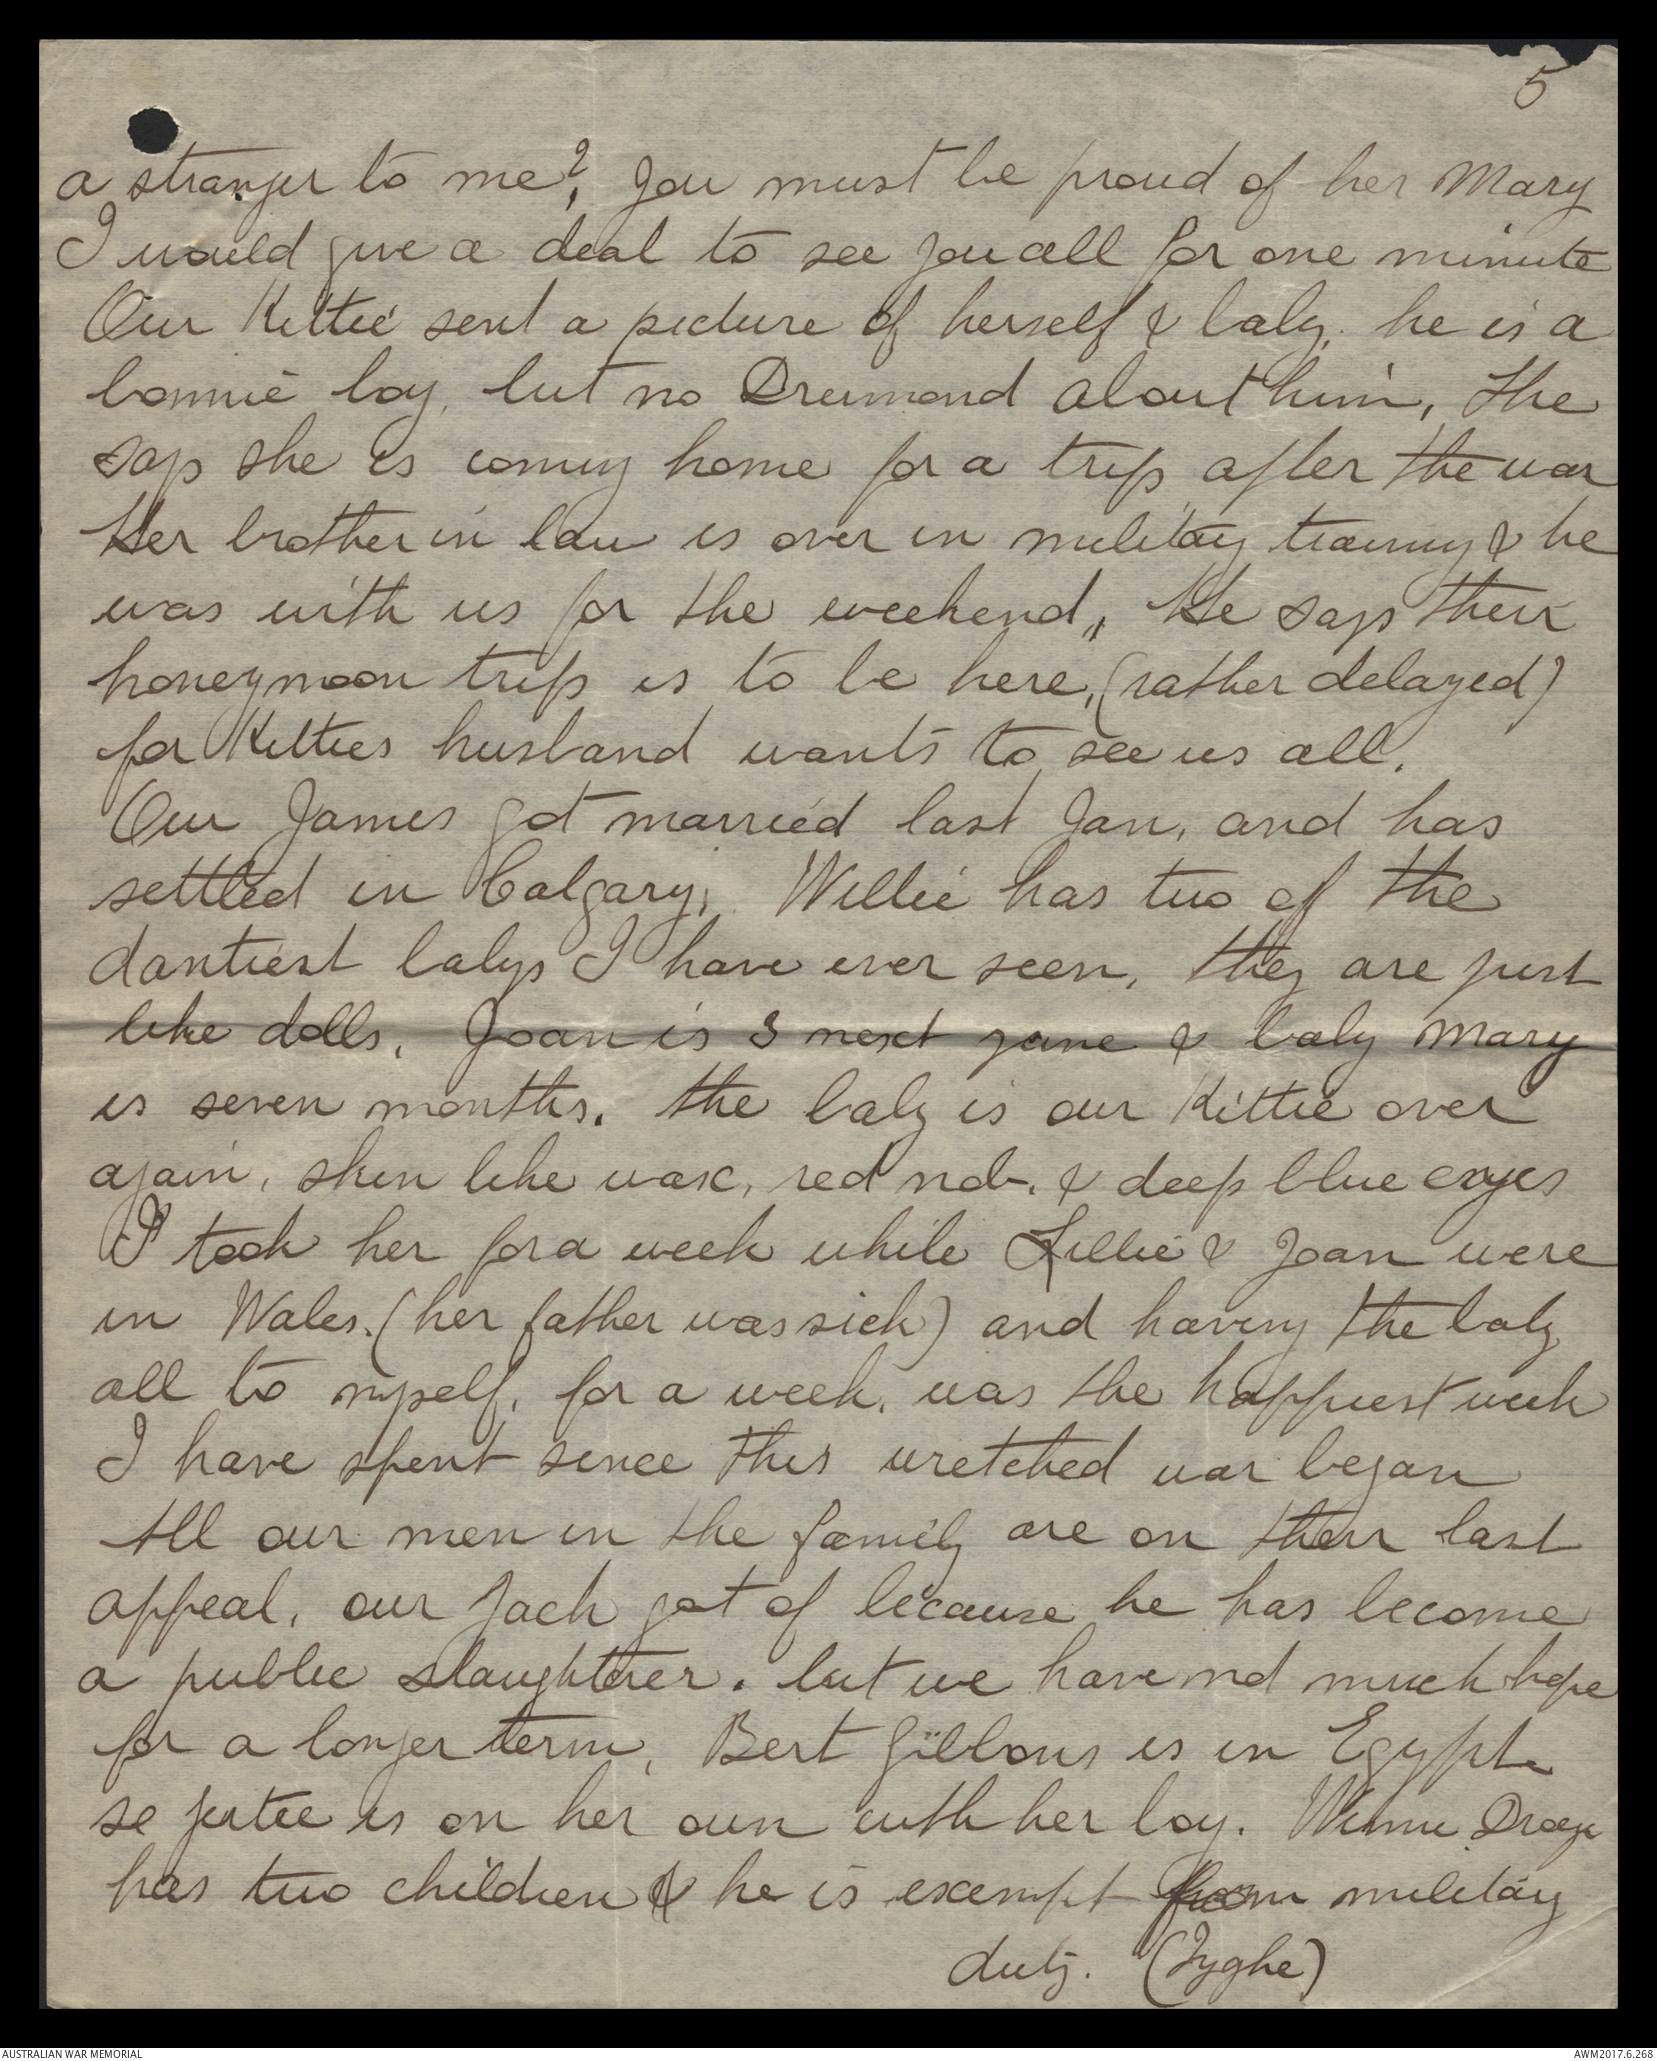 5
a stranger to me?, you must be proud of her Mary
I would give a deal to see you all for one minute
Our Kittie sent a picture of herself & baby, he is a
bonnie boy, but no Drumond about him, She
says she is coming home for a trip after the war
Her brother in law is over in military training & he
was with us for the weekend,, He says their
honeymoon trip is to be here, (rather delayed)
for Kitties husband wants to see us all.
Our James got married last Jan, and has
settled in Calgary, Willie has two of the
dantiest babys I have ever seen, they are just
like dolls, Joan is 3 next june & baby Mary
is seven months. the baby is our Kittie over
again, skin like wax, red nob-. & deep blue eyes
I took her for a week while Lillie & Joan were
in Wales. (her father was sick) and having the baby
all to myself, for a week, was the happiest week
I have spent since this wretched war began
All our men in the family are on their last
appeal, our Jack got of because he has become
a public slaughterer. but we have not much hope
for a longer term, Bert Gibbons is in Egypt
so is on her own with her boy. Winnie
has two children & he is exempt from military
duty. (Tyghe)
AUSTRALIAN WAR MEMORIAL
AWM2017.6.268